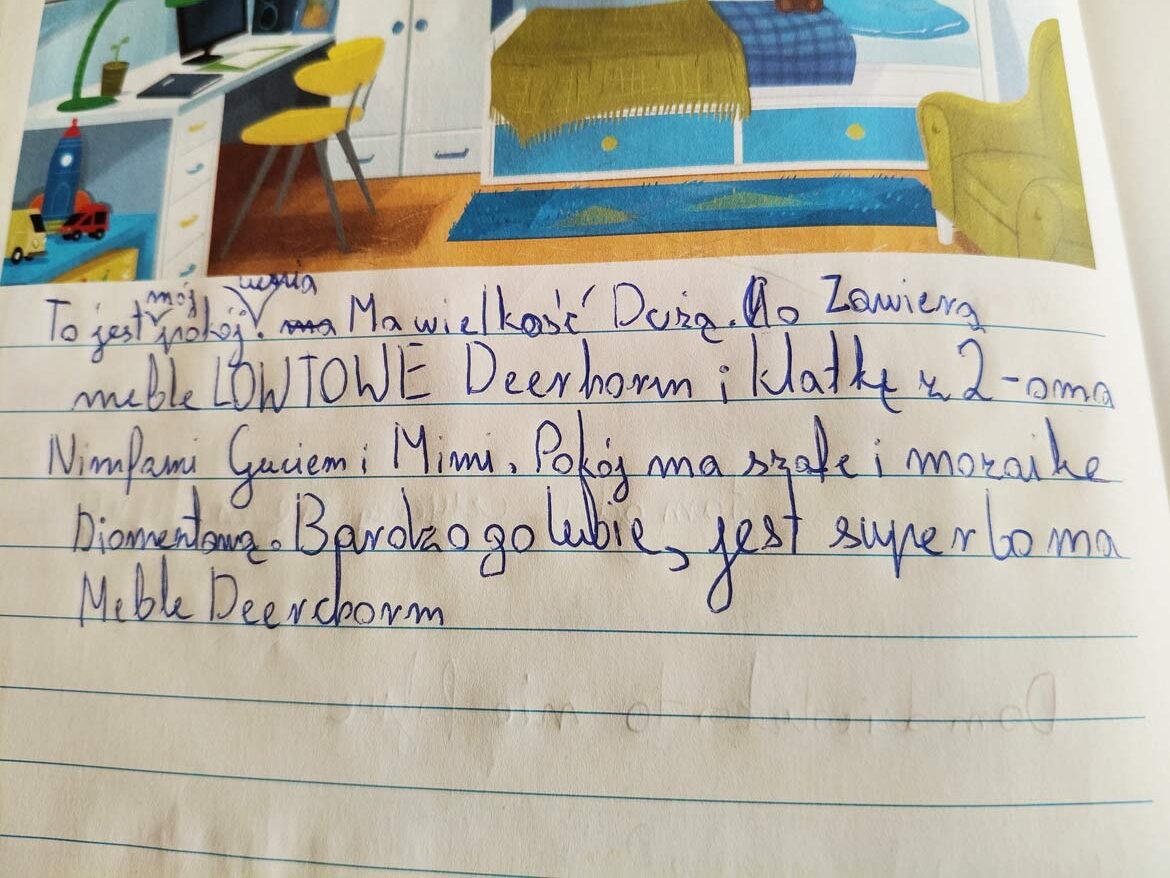 mój
To jest pokój. ma Ma wielkość Dużą. Zawiera
meble LOWTOWE Deerhorm i klatkę z 2-oma
Nimfami Guciem i Mimi. Pokój ma szafe i mozaike
Diomentową. Bardzo go lubie, jest super bo ma
Meble Deerchorm